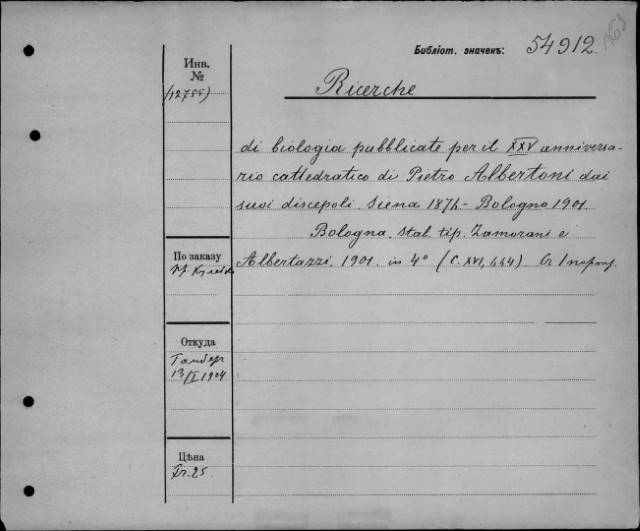 Библіот. значекъ: 54912
168
Инв.
№
(12755)
Ricerche
di biologia pubblicate per il XXV anniversa-
rio cattedratico di Pietro Albertoni dai
suoi discepoli. Siena 1876 - Bologna 1901
Bologna. Stab. tip. Zamorani e
Albertazzi. 1901. in 4° (C. XVI, 644)
По заказу
Откуда
13/I 1904
Цѣна
Fr. 25.